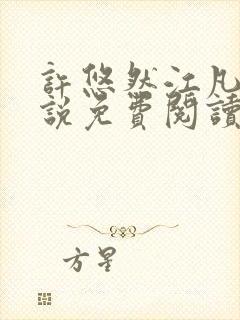 許悠然江凡
說免費閱讀
方星